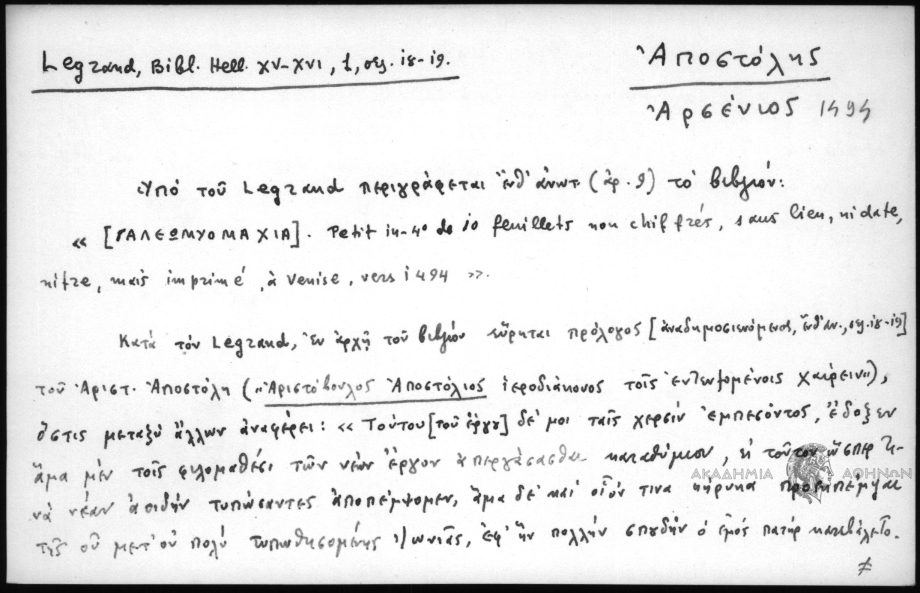 Legrand, Bibl. Hell. XV-XVI, 1, σελ. 18-19.
Ἀποστόλης
Ἀρσένιος 1494
Ὑπὸ τοῦ Legrand περιγράφεται ἔνθ' ἀνωτ. (ἀρ. 9) τὸ βιβλίον:
« [ΓΑΛΕΩΜΥΟΜΑΧΙΑ]. Petit in-4° de 10 feuillets non chiffrés, sans lieu, ni date,
ni tre, mais imprimé, à Venise, vers 1494 ».
Κατὰ τὸν Legrand, ἐν ἀρχῇ τοῦ βιβλίου εὕρηται πρόλογος [ἀναδημοσιευόμενος, ἔνθ' ἀν., σελ. 18-19]
τοῦ Ἀριστ. Ἀποστόλη („Ἀριστόβουλος Ἀποστόλιος ἱεροδιάκονος τοῖς ἐντευξομένοις χαίρειν"),
ὅστις μεταξὺ ἄλλων ἀναφέρει: « Τούτου [τοῦ ἔργου] δέ μοι ταῖς χερσὶν ἐμπεσόντος, ἔδοξεν
ἅμα μὲν τοῖς φιλομαθέσι τῶν νέων ἔργον ἀπεργάσασθαι καταθύμιον, εἰ τοῦτον ὥσπερ τι-
νὰ νέαν ἀοιδὴν τυπώσαντες ἀποπέμψομεν, ἅμα δὲ καὶ οἷόν τινα κήρυκα προεκπέμψαι
τῆς οὐ μετ' οὐ πολὺ τυπωθησομένης Ἰωνιᾶς, ἐφ' ἣν πολλὴν σπουδὴν ὁ ἐμὸς πατὴρ κατεβάλετο.
≠
ΑΚΑΔΗΜΙΑ ΑΘΗΝΩΝ